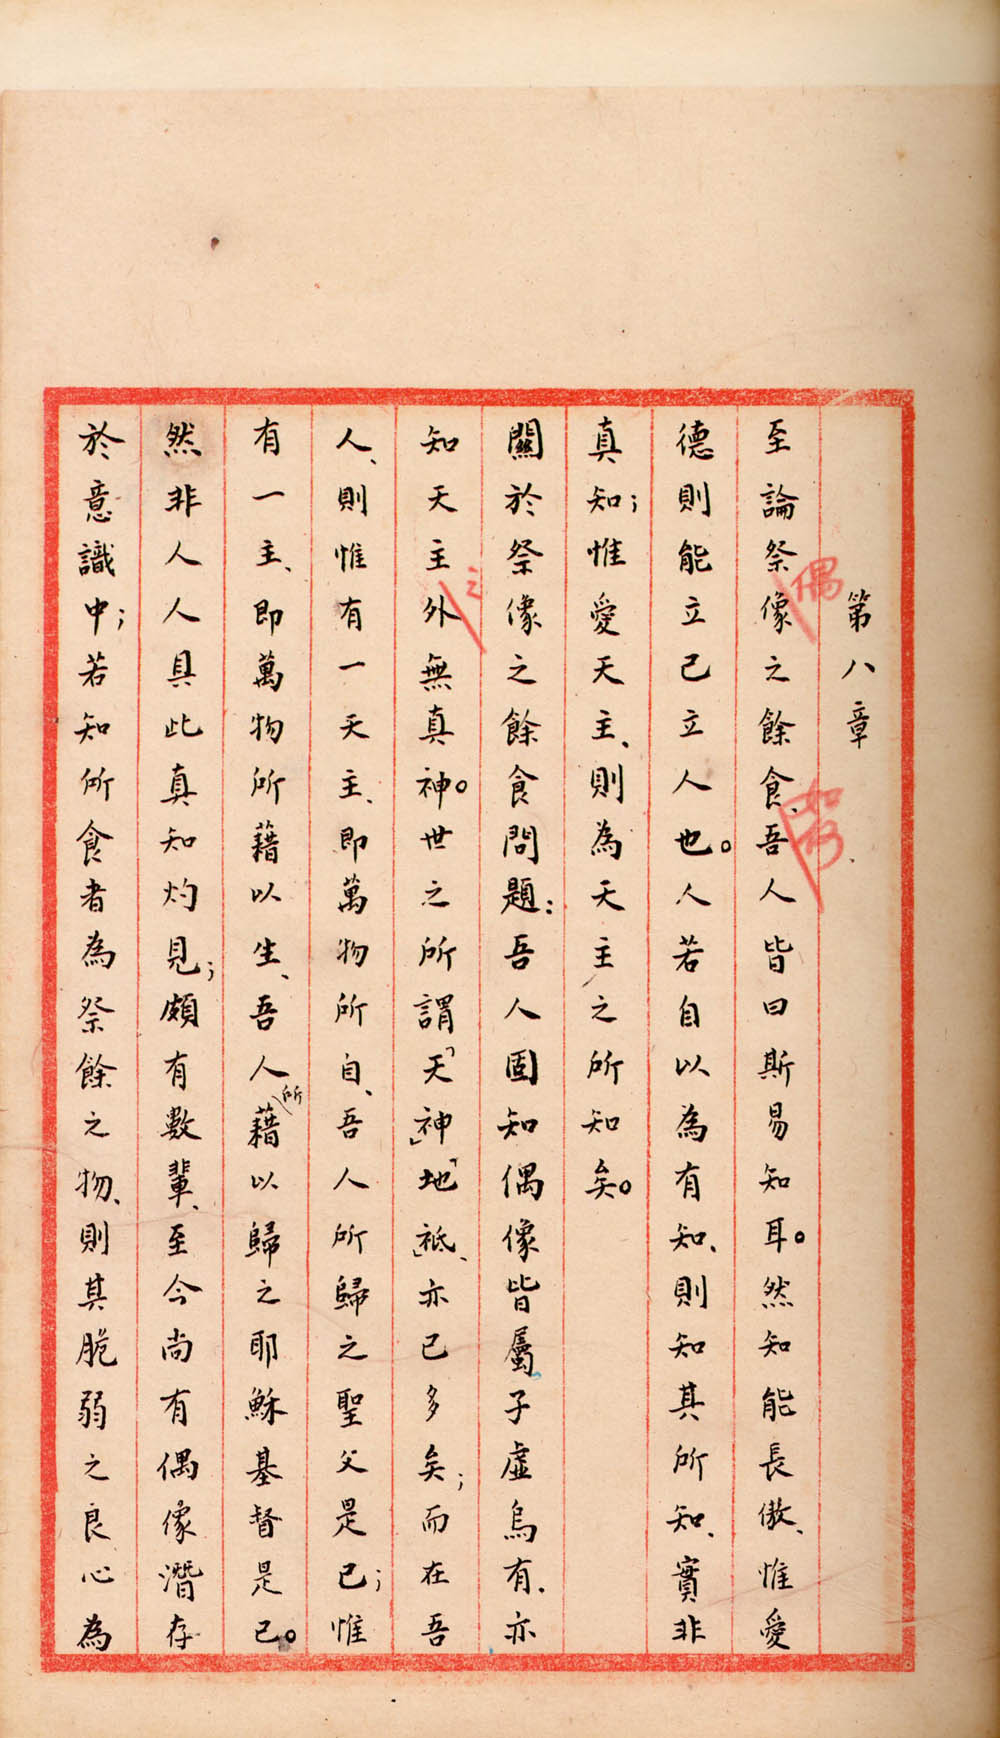 第八章
至論祭像之餘食、吾人皆曰斯易知耳。然知能長傲、惟愛
德則能立己立人也。人若自以為有知、則知其所知、實非
真知；惟愛天主、則為天主之所知矣。
關於祭像之餘食問題：吾人固知偶像皆屬子虛烏有、亦
知天主外無真神。世之所謂「天神」「地祇」、亦已多矣；而在吾
人、則惟有一天主、即萬物所自、吾人所歸之聖父是已；惟
有一主、即萬物所藉以生、吾人所藉以歸之耶穌基督是已。
然非人人具此真知灼見；頗有數輩、至今尚有偶像潛存
於意識中；若知所食者為祭餘之物、則其脆弱之良心為
偶
之